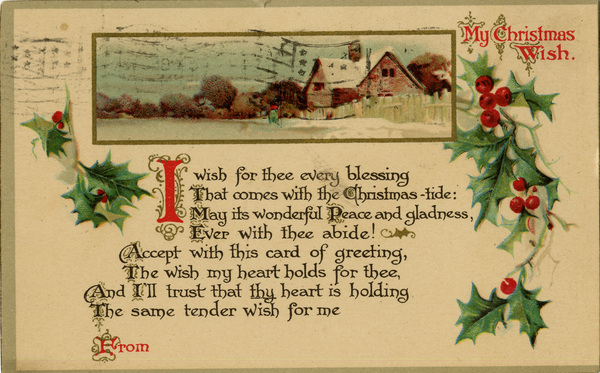 My Christmas
Wish.
I wish for thee every blessing
That comes with the Christmas-tide:
May its wonderful Peace and gladness,
Ever with thee abide!
Accept with this card of greeting,
The wish my heart holds for thee,
And I'll trust that thy heart is holding
The same tender wish for me
From